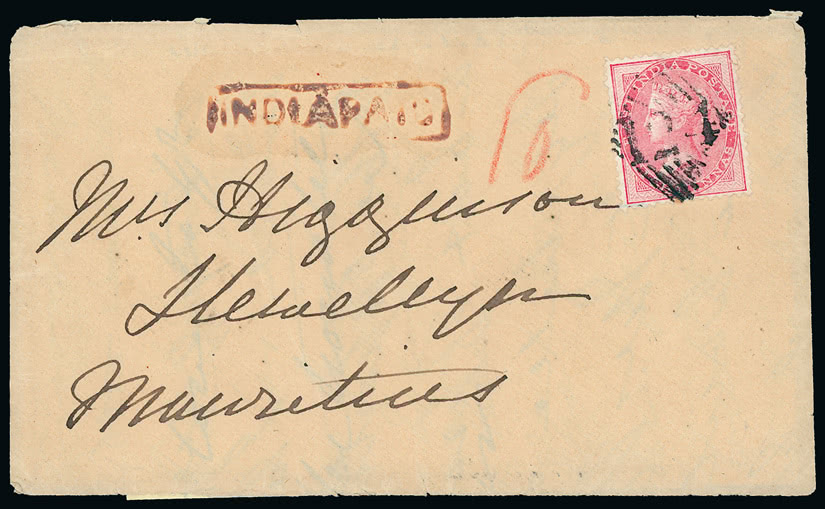 INDIA PAID
6
INDIA POSTAGE
ANNAS
Mrs Higginson
Llewellyn
Mauritius